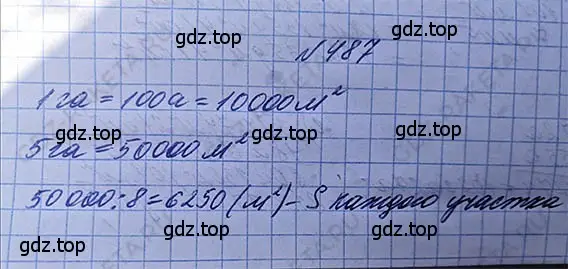 gdz.top
№487
gdz.top
1 га = 100а = 10000 м²
gdz.top gdz.top
5 га = 50000 м²
gdz.top gdz.top
50000:8=6250 (м²) – S каждого участка
gdz.top gdz.top